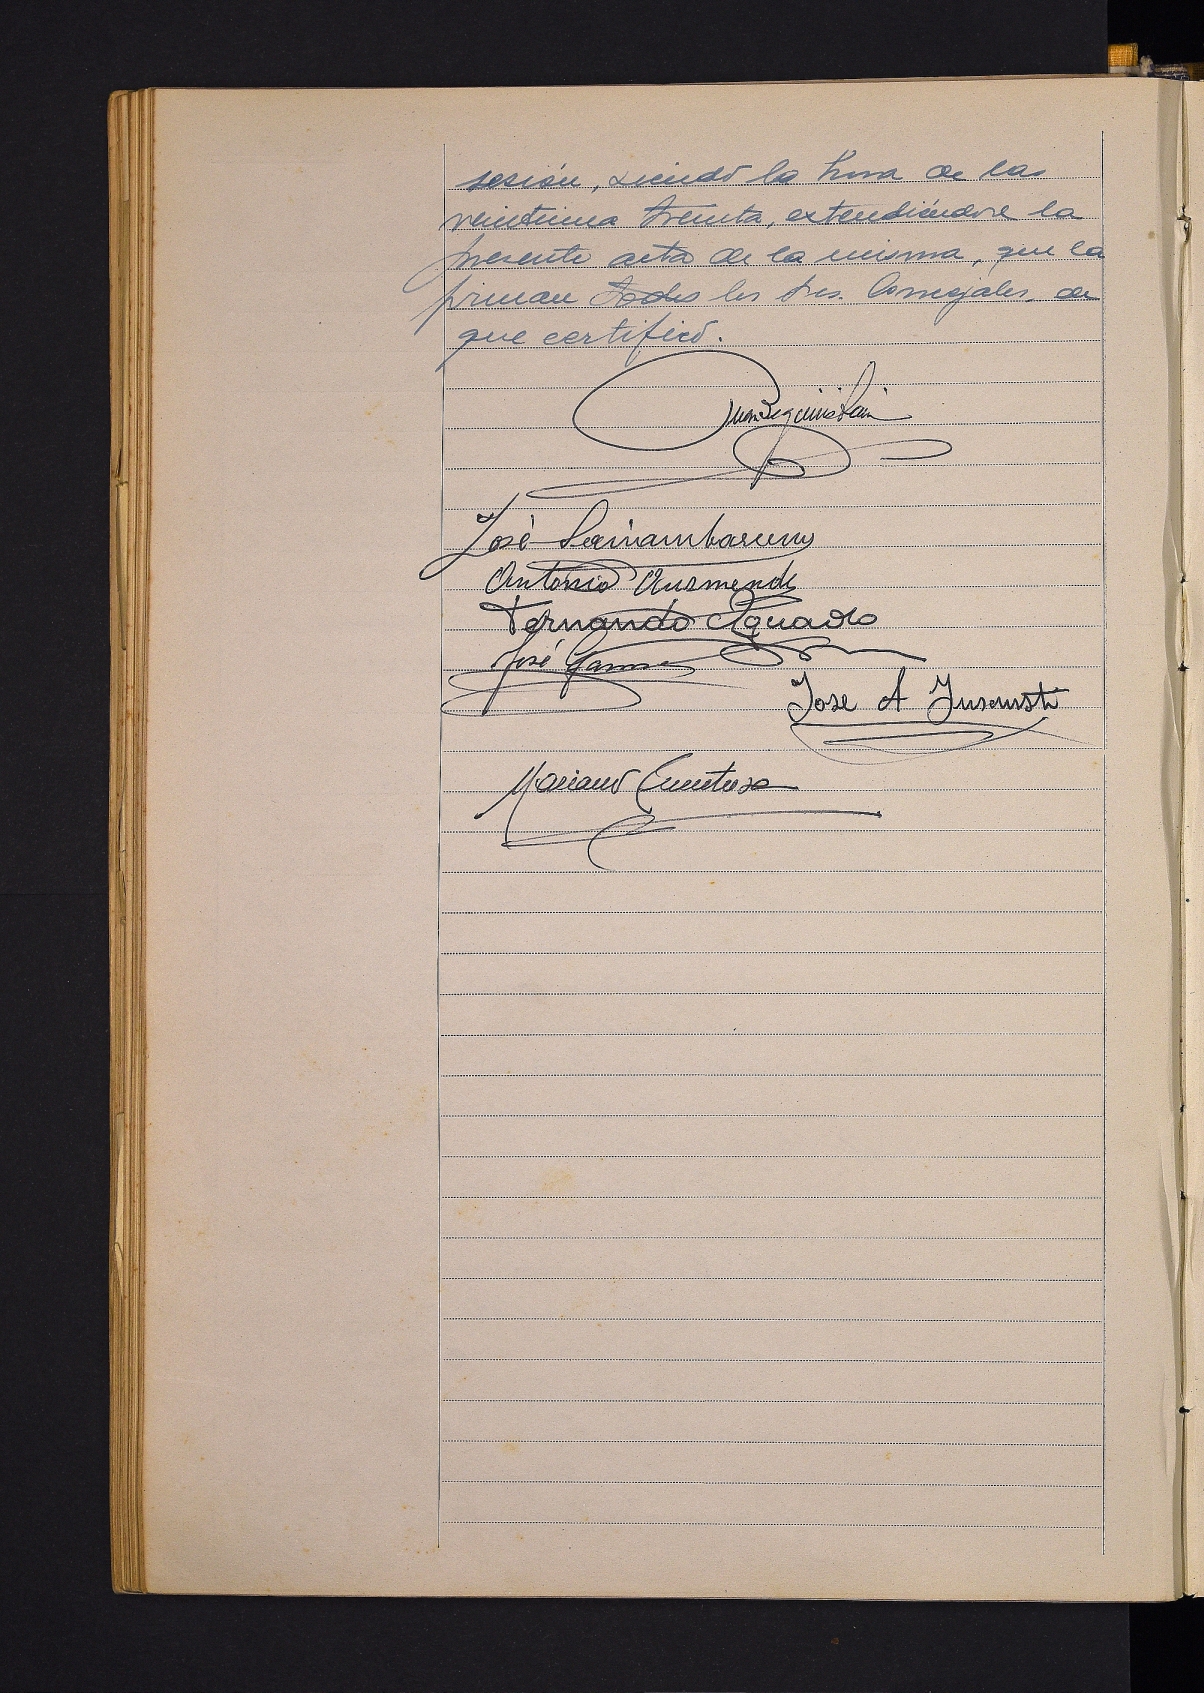 sesión, siendo la hora de las
veintiuna treinta, extendiéndose la
presente acta de la misma, que la
firman todos los Sres. Concejales, de
que certifico.
José
Antonio
Fernando Aguado
José
Jose A
Mariano